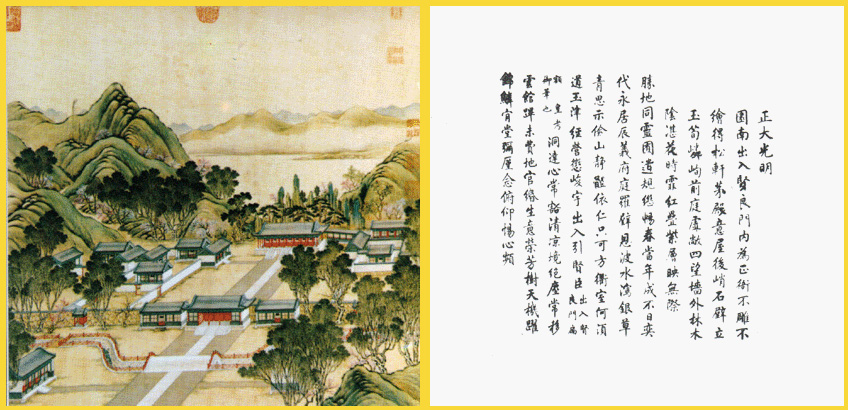 正大光明
園南出入賢良門內為正衙不雕不
繪得松軒茅殿意屋後峭石壁立
玉筍嶙峋前庭虛敞四望墻外林木
陰湛花時霏紅疊紫層映無際
勝地同靈囿遺規繼暢春當年成不日奕
代永居辰義府庭羅璧恩波水瀉銀草
青思示儉山靜體依仁只可方衢室何須
道玉津經營懲峻宇出入引賢臣出入賢良門為
額皇考御筆也洞達心常豁清涼境絕塵常移
雲館蹕未費地官緡生意榮芳樹天機躍
錦鱗肯堂彌厪念俯仰惕心頻